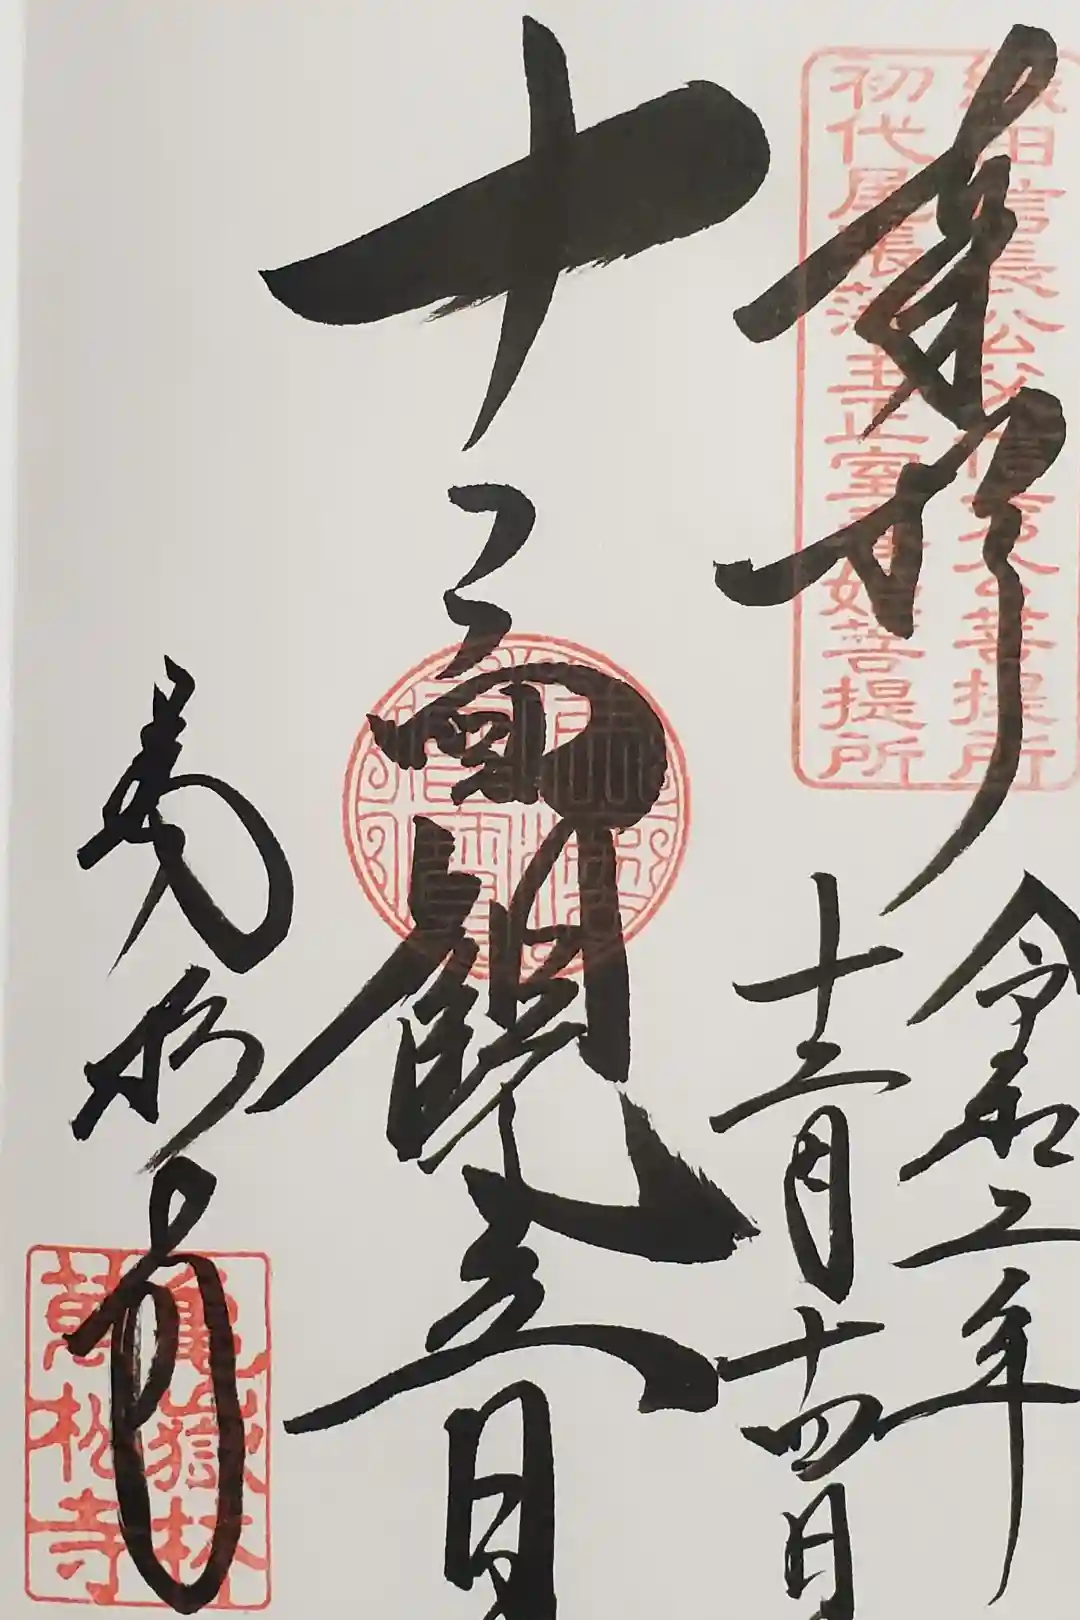 奉拝
織田信長公父信秀公菩提所
初代尾張藩主正室春姫菩提所
令和二年
十二月十四日
十一面観世音
萬松寺
亀嶽林
萬松寺